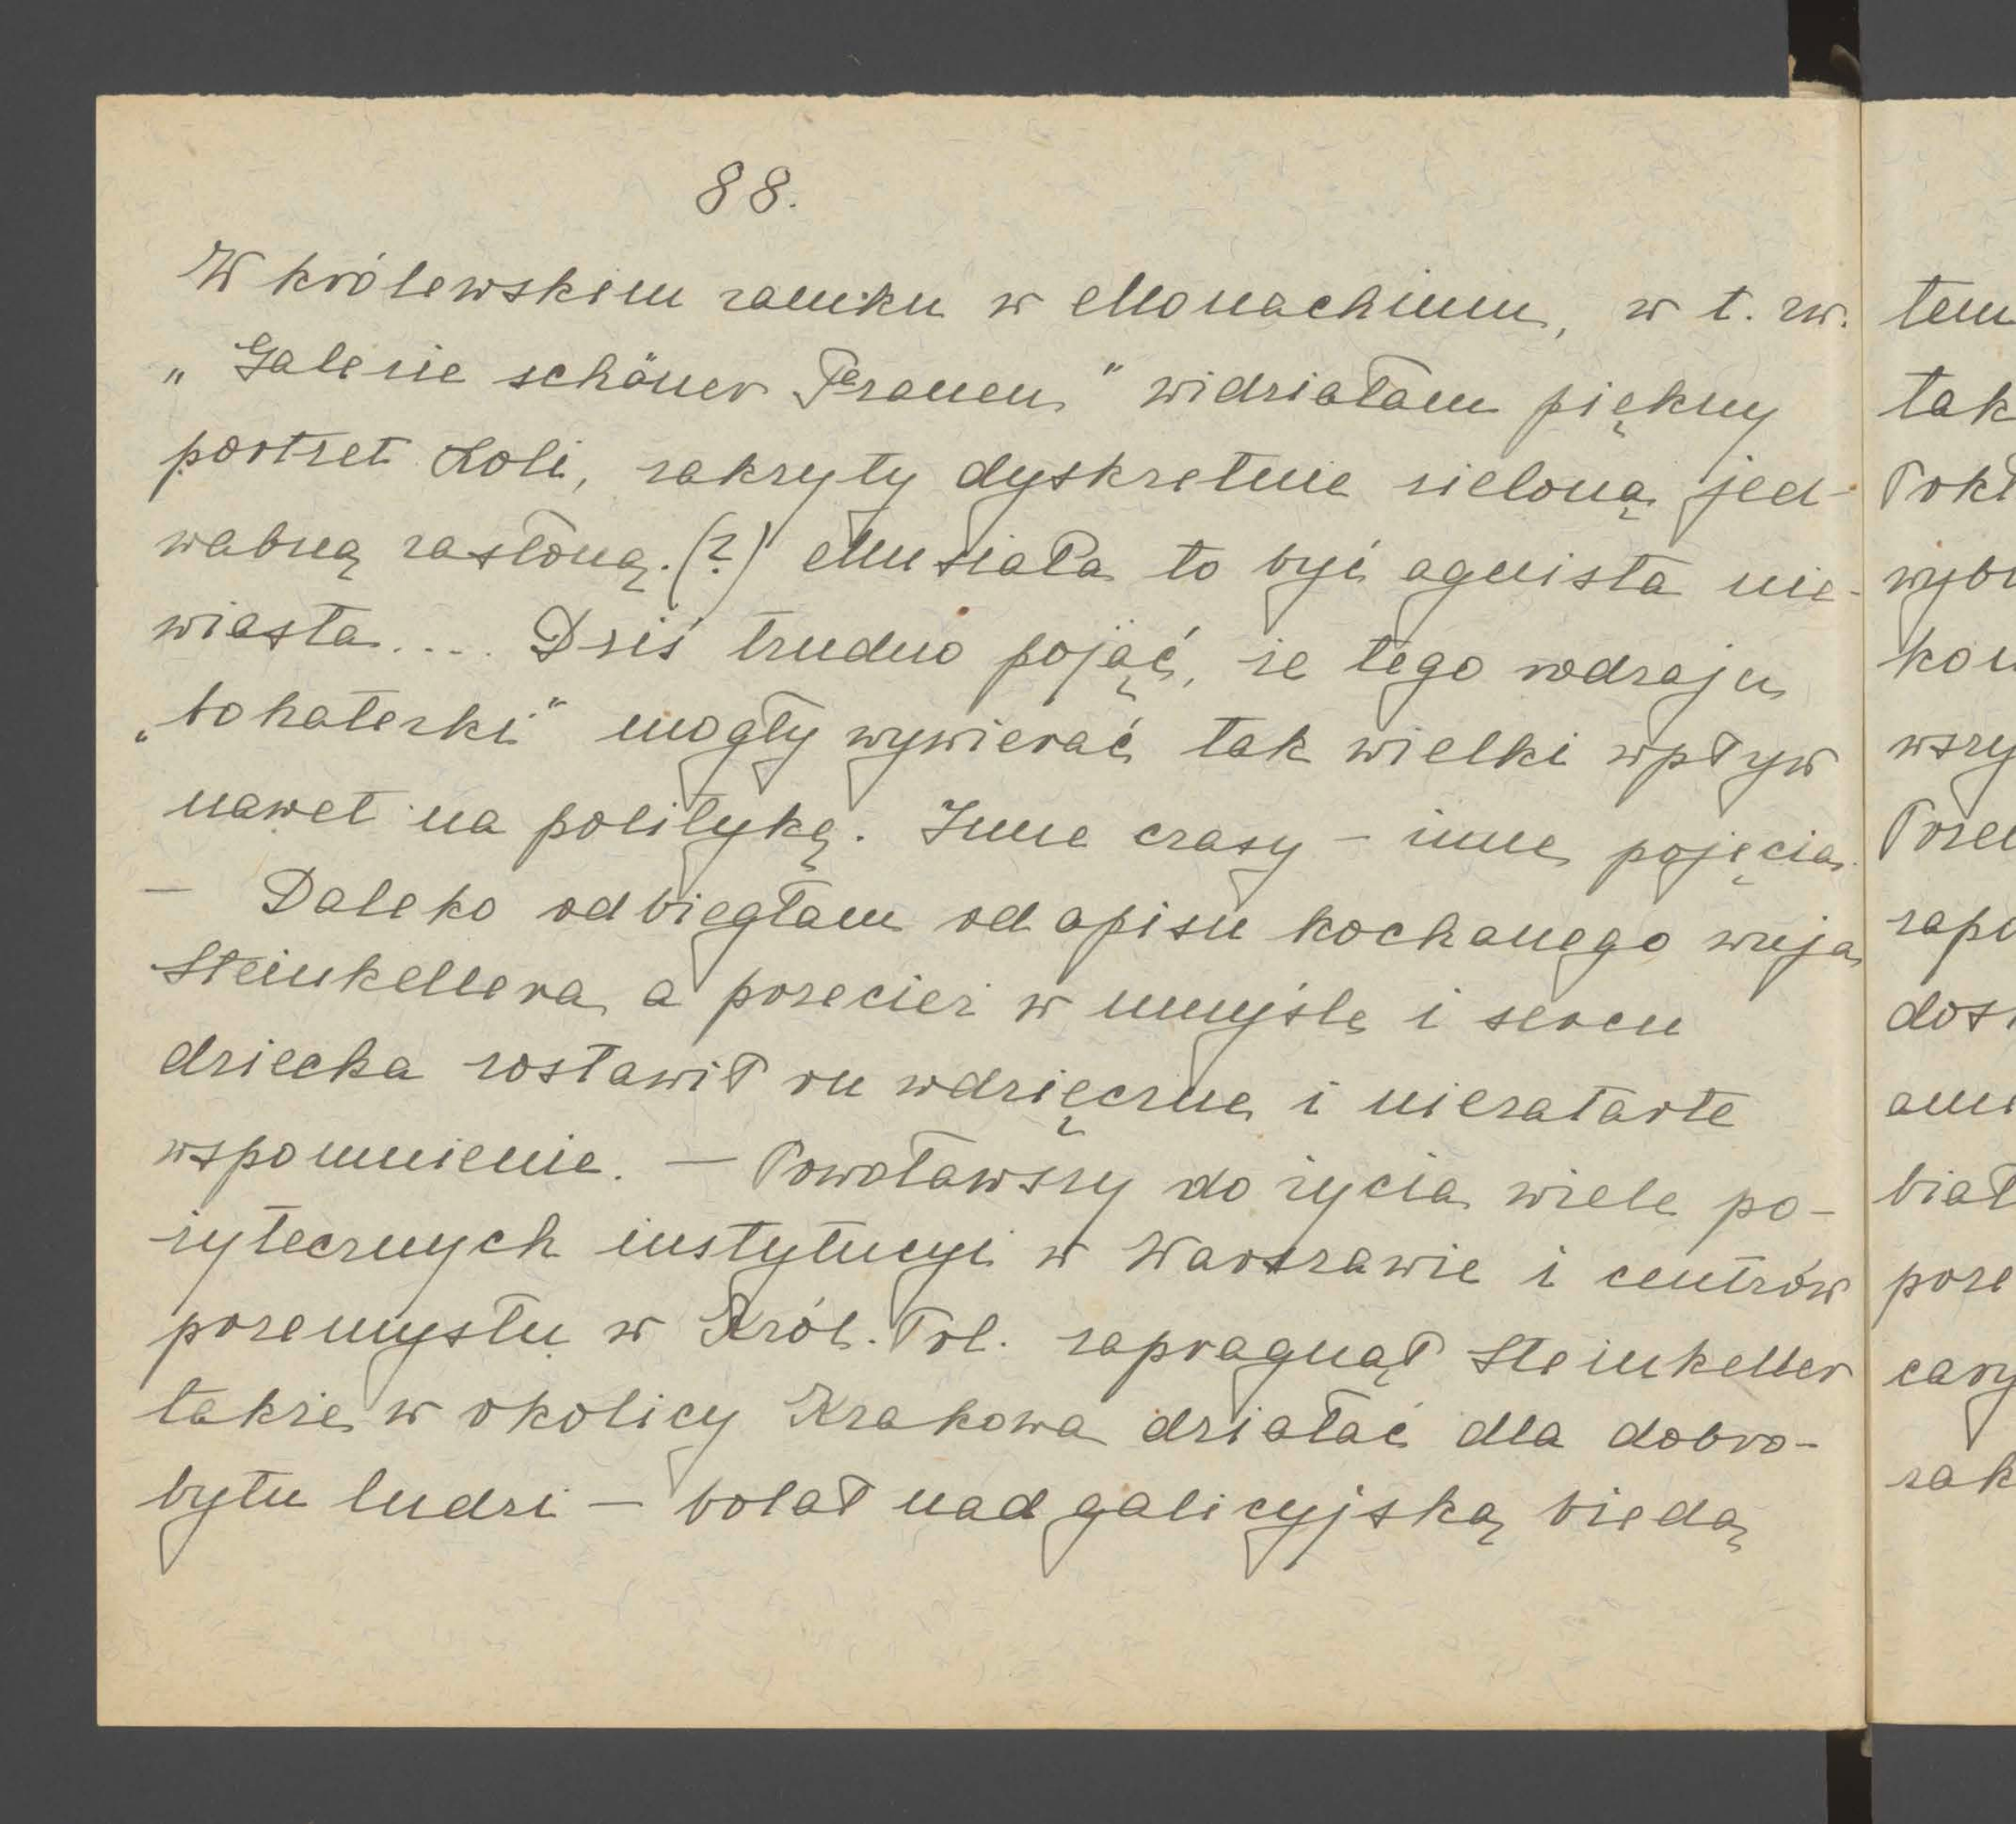 88.
W królewskim zamku w Monachium, w t. zw.
„Galerie schöner Frauen" widziałam piękny
portret Loli, zakryty dyskretnie zieloną jed-
wabną zasłoną. (?) Musiała to być ognista nie-
wiasta.... Dziś trudno pojąć, że tego rodzaju
„bohaterki" mogły wywierać tak wielki wpływ
nawet na politykę. Inne czasy – inne pojęcia.
– Daleko odbiegłam od opisu kochanego wuja
Steinkellera a przecież w umyśle i sercu
dziecka zostawił on wdzięczne i niezatarte
wspomnienie. – Powoławszy do życia wiele po-
żytecznych instytucyi w Warszawie i centrów
przemysłu w Król. Pol. zapragnął Steinkeller
także w okolicy Krakowa działać dla dobro-
bytu ludzi – bolał nad galicyjską biedą
tem
tak